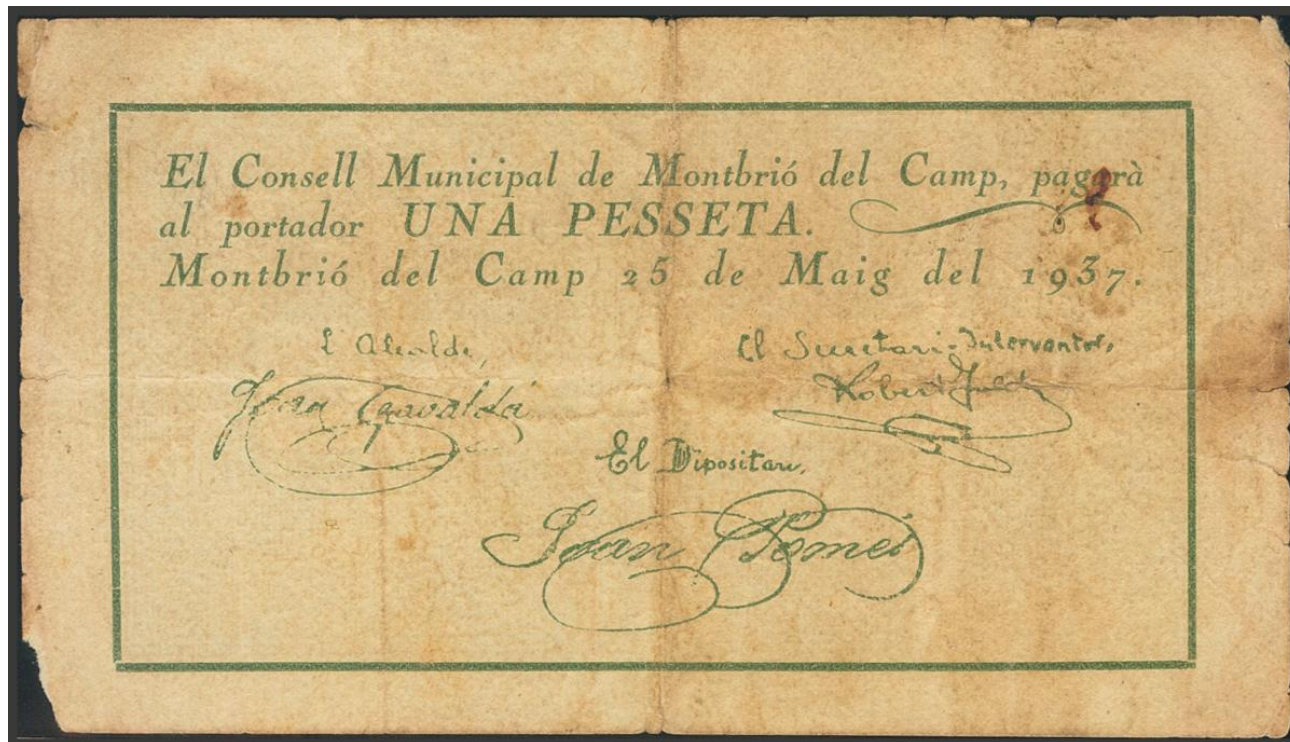 El Consell Municipal de Montbrió del Camp, pagarà
al portador UNA PESSETA.
Montbrió del Camp 25 de Maig del 1937.
L Alcalde,
El Secretari-Interventor,
Joan
Robert
El Dipositari,
Joan Pomés